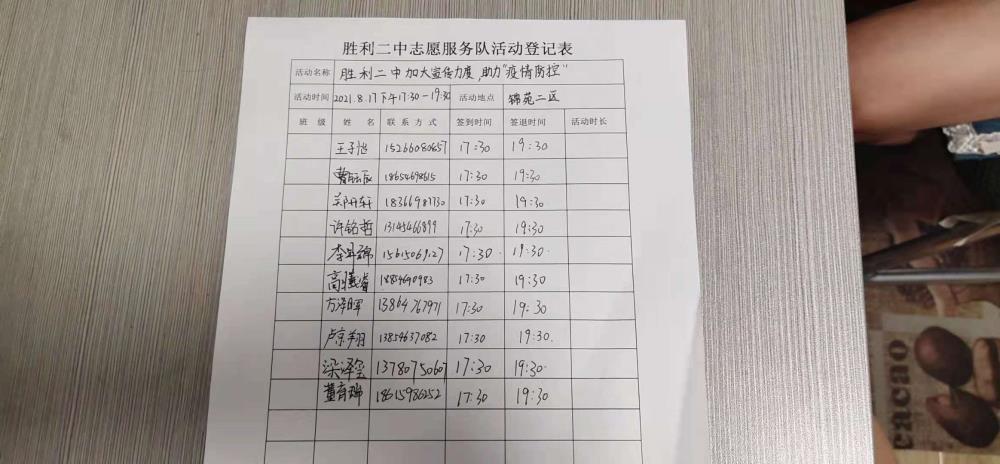 胜利二中志愿服务队活动登记表
活动名称 胜利二中加大宣传力度,助力"疫情防控"
活动时间 2021.8.17下午17:30-19:30 活动地点 锦苑二区
班 级 姓 名 联系方式 签到时间 签退时间 活动时长
王子怡 15266080657 17:30 19:30
曹 18654698615 17:30 19:30
郑丹轩 18366981730 17:30 19:30
许铭哲 13145466899 17:30 19:30
李 15615069127 17:30 19:30
高 18854690983 17:30 19:30
方泽晖 13864767971 17:30 19:30
卢京翔 13854637082 17:30 19:30
梁泽 13780750607 17:30 19:30
董育瑞 18615986252 17:30 19:30
cacao